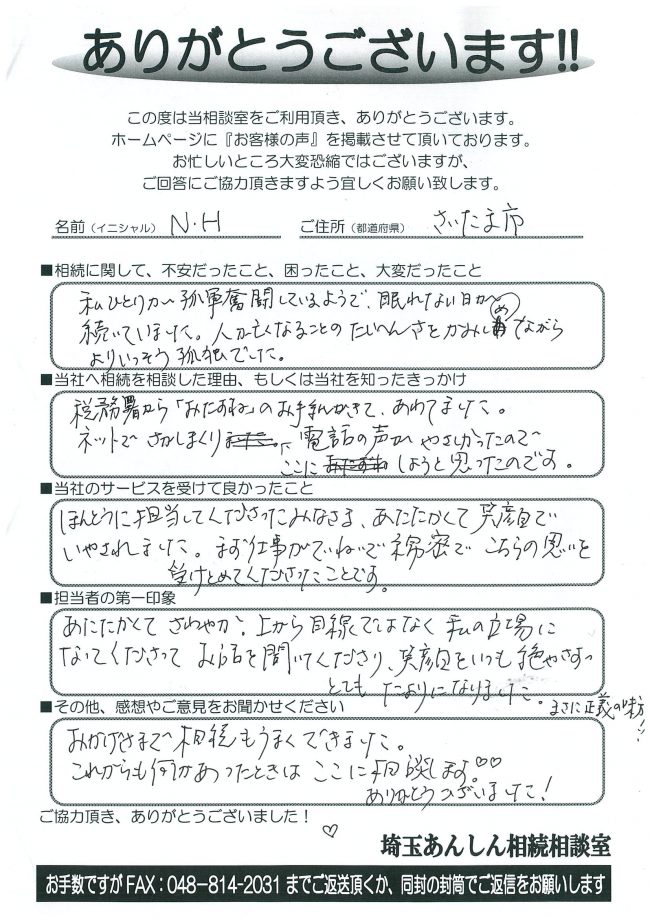 ありがとうございます!!
この度は当相談室をご利用頂き、ありがとうございます。
ホームページに『お客様の声』を掲載させて頂いております。
お忙しいところ大変恐縮ではございますが、
ご回答にご協力頂きますよう宜しくお願い致します。
名前(イニシャル) N・H ご住所(都道府県) さいたま市
■相続に関して、不安だったこと、困ったこと、大変だったこと
私ひとりが孤軍奮闘しているようで、眠れない日が
続いていました。人が亡くなることのたいへんさをかみしめながら
よりいっそう孤独でした。
■当社へ相続を相談した理由、もしくは当社を知ったきっかけ
税務署から「おたずね」のお手紙がきて、あわてました。
ネットでさがしまくり、電話の声がやさしかったので
ここにしようと思ったのです。
■当社のサービスを受けて良かったこと
ほんとうに担当してくださったみなさま、あたたかくて笑顔で
いやされました。まず仕事がていねいで綿密でこちらの思いを
受けとめてくださったことです。
■担当者の第一印象
あたたかくてさわやか。上から目線ではなく私の立場に
なってくださってお話を聞いてくださり、笑顔をいつも絶やさず
とてもたよりになりました。まさに正義の味方!!
■その他、感想やご意見をお聞かせください
おかげさまで相続もうまくできました。
これからも何かあったときはここに相談します。♡♡
ありがとうございました!
ご協力頂き、ありがとうございました!
♡
埼玉あんしん相続相談室
お手数ですがFAX:048-814-2031までご返送頂くか、同封の封筒でご返信をお願いします